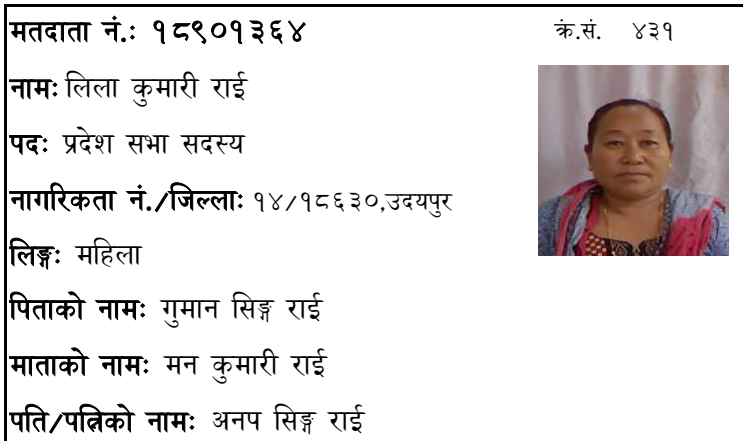 मतदाता नं.: १८९०१३६४ क्रं.सं. ४३१
नाम: लिला कुमारी राई
पद: प्रदेश सभा सदस्य
नागरिकता नं./जिल्ला: १४/१८६३०,उदयपुर
लिङ्ग: महिला
पिताको नाम: गुमान सिङ्ग राई
माताको नाम: मन कुमारी राई
पति/पत्निको नाम: अनप सिङ्ग राई